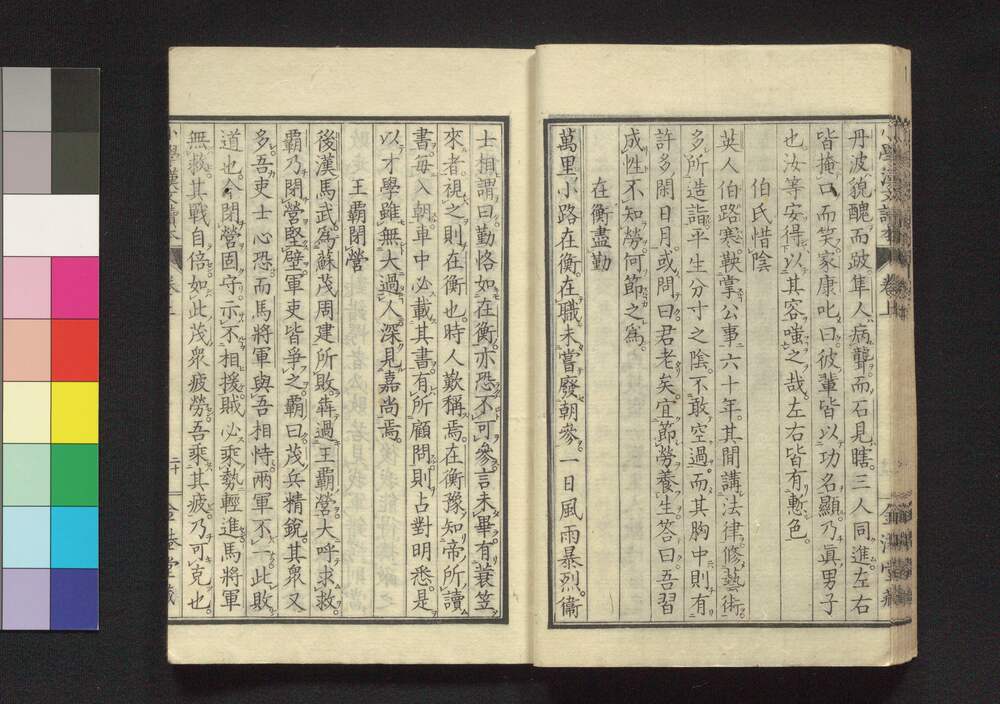 丹波貌醜而跛隼人病聾而石見瞎三人同進左右
皆掩口而笑家康叱曰彼輩皆以功名顯乃眞男子
也汝等安得以其容嗤之哉左右皆有慙色
伯氏惜陰
英人伯路寒獣掌公事六十年其間講法律修藝術
多所造詣平生分寸之陰不敢空過而其胸中則有
許多閑日月或問曰君老矣宜節勞養生答曰吾習
成性不知勞何節之爲
在衡盡勤
萬里小路在衡在職未嘗廢朝參一日風雨暴烈衞
士相謂曰勤恪如在衡亦恐不可參言未畢有蓑笠
來者視之則在衡也時人歎稱焉在衡豫知帝所讀
書每入朝車中必載其書有所顧問則占對明悉是
以才學雖無大過人深見嘉尚焉
王霸閉營
後漢馬武爲蘇茂周建所敗犇過王霸營大呼求救
霸乃閉營堅壁軍吏皆爭之霸曰茂兵精銳其衆又
多吾吏士心恐而馬將軍與吾相恃兩軍不一此敗
道也今閉營固守示不相援賊必乘勢輕進馬將軍
無救其戰自倍如此茂衆疲勞吾乘其疲乃可克也
小學漢文讀本
卷上
二十
金港堂藏